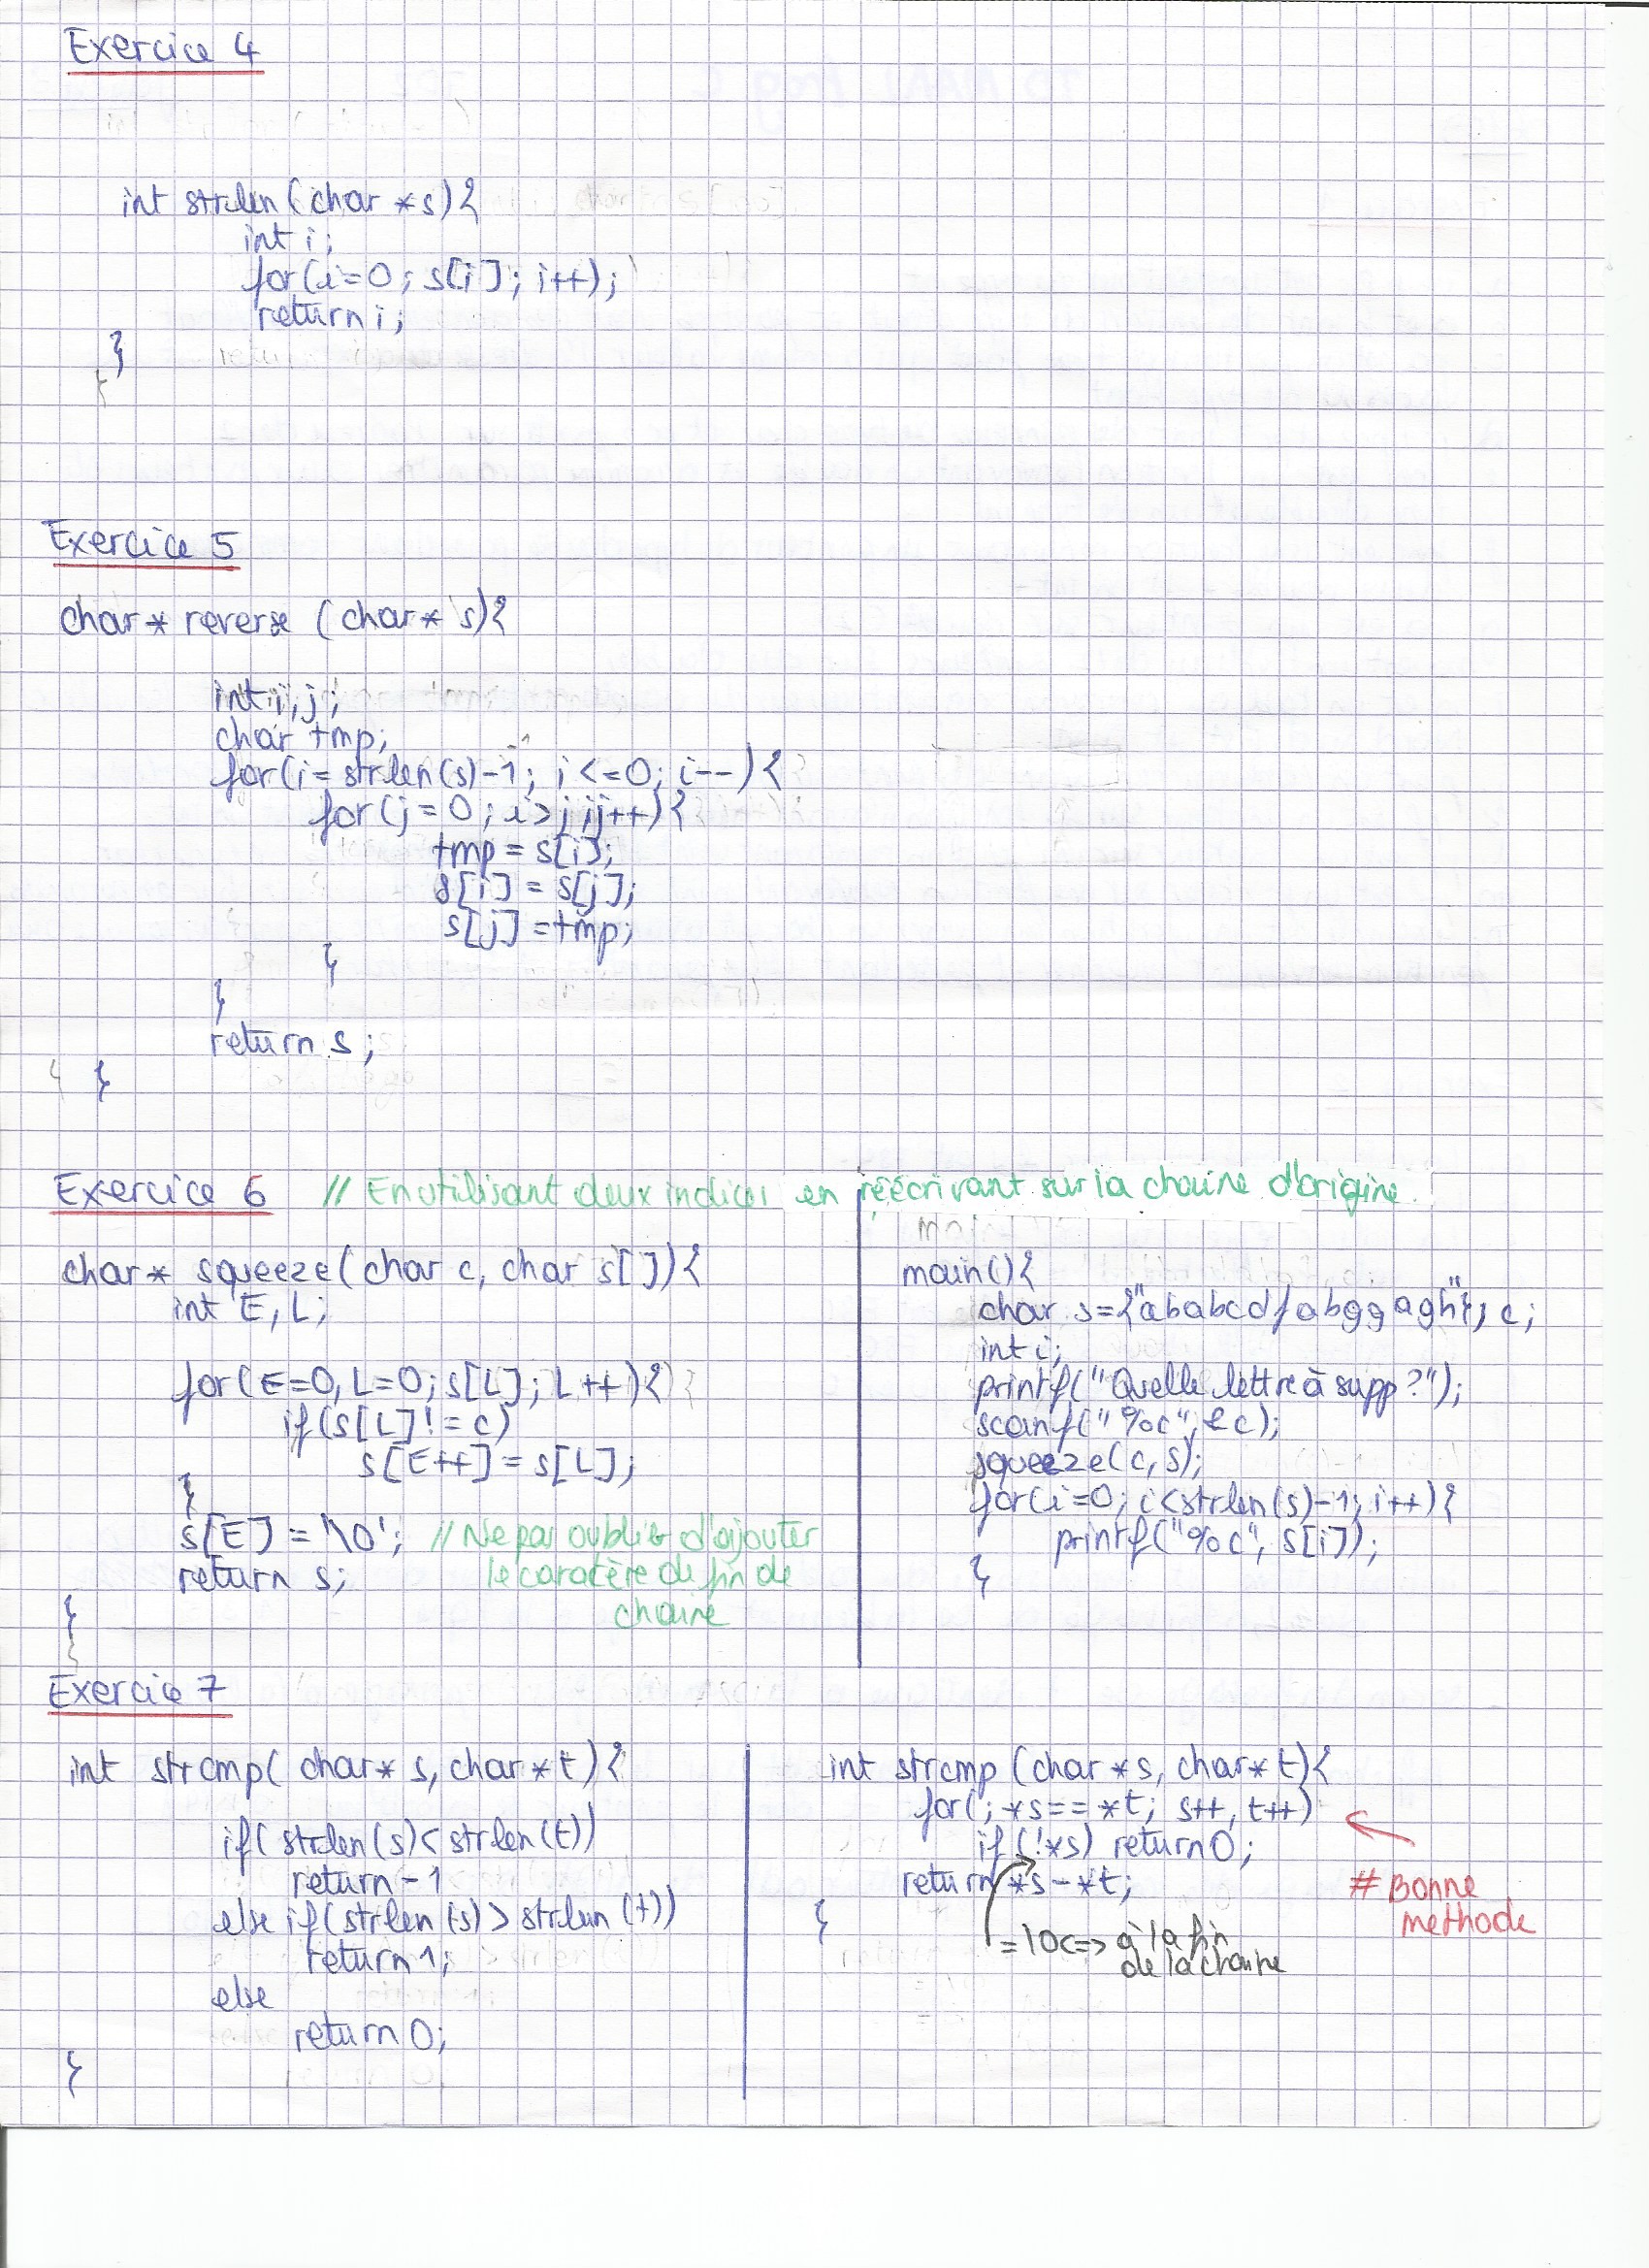 Exercice 4
int strlen(char *s){
int i;
for(i=0; s[i]; i++);
return i;
}
Exercice 5
char* reverse (char* s){
int i,j;
char tmp;
for(i=strlen(s)-1; i<=0; i--){
for(j=0; i>j; j++){
tmp = s[i];
s[i] = s[j];
s[j] = tmp;
}
}
return s;
}
Exercice 6 // En utilisant deux indices en réécrivant sur la chaine d'origine.
char* squeeze(char c, char s[]){
int E, L;
for(E=0, L=0; s[L]; L++){
if(s[L] != c)
s[E++] = s[L];
}
s[E] = '\0'; // Ne pas oublier d'ajouter
le caractère de fin de
chaine
return s;
}
main(){
char s={"ababcdfabggagh"}, c;
int i;
printf("Quelle lettre à supp?");
scanf("%c", &c);
squeeze(c, s);
for(i=0; i<strlen(s)-1; i++){
printf("%c", s[i]);
}
Exercice 7
int strcmp( char* s, char* t){
if( strlen(s) < strlen(t))
return -1
else if(strlen(s) > strlen(t))
return 1;
else
return 0;
}
int strcmp (char *s, char* t){
for(; *s==*t; s++, t++)
if (!*s) return 0;
return *s-*t;
}
= \0 <=> à la fin
de la chaine
# Bonne
methode